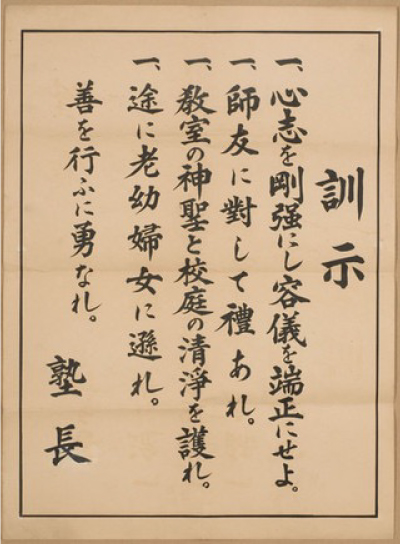 訓示
一、心志を剛强にし容儀を端正にせよ。
一、師友に對して禮あれ。
一、敎室の神聖と校庭の清淨を護れ。
一、途に老幼婦女に遜れ。
善を行ふに勇なれ。
塾長